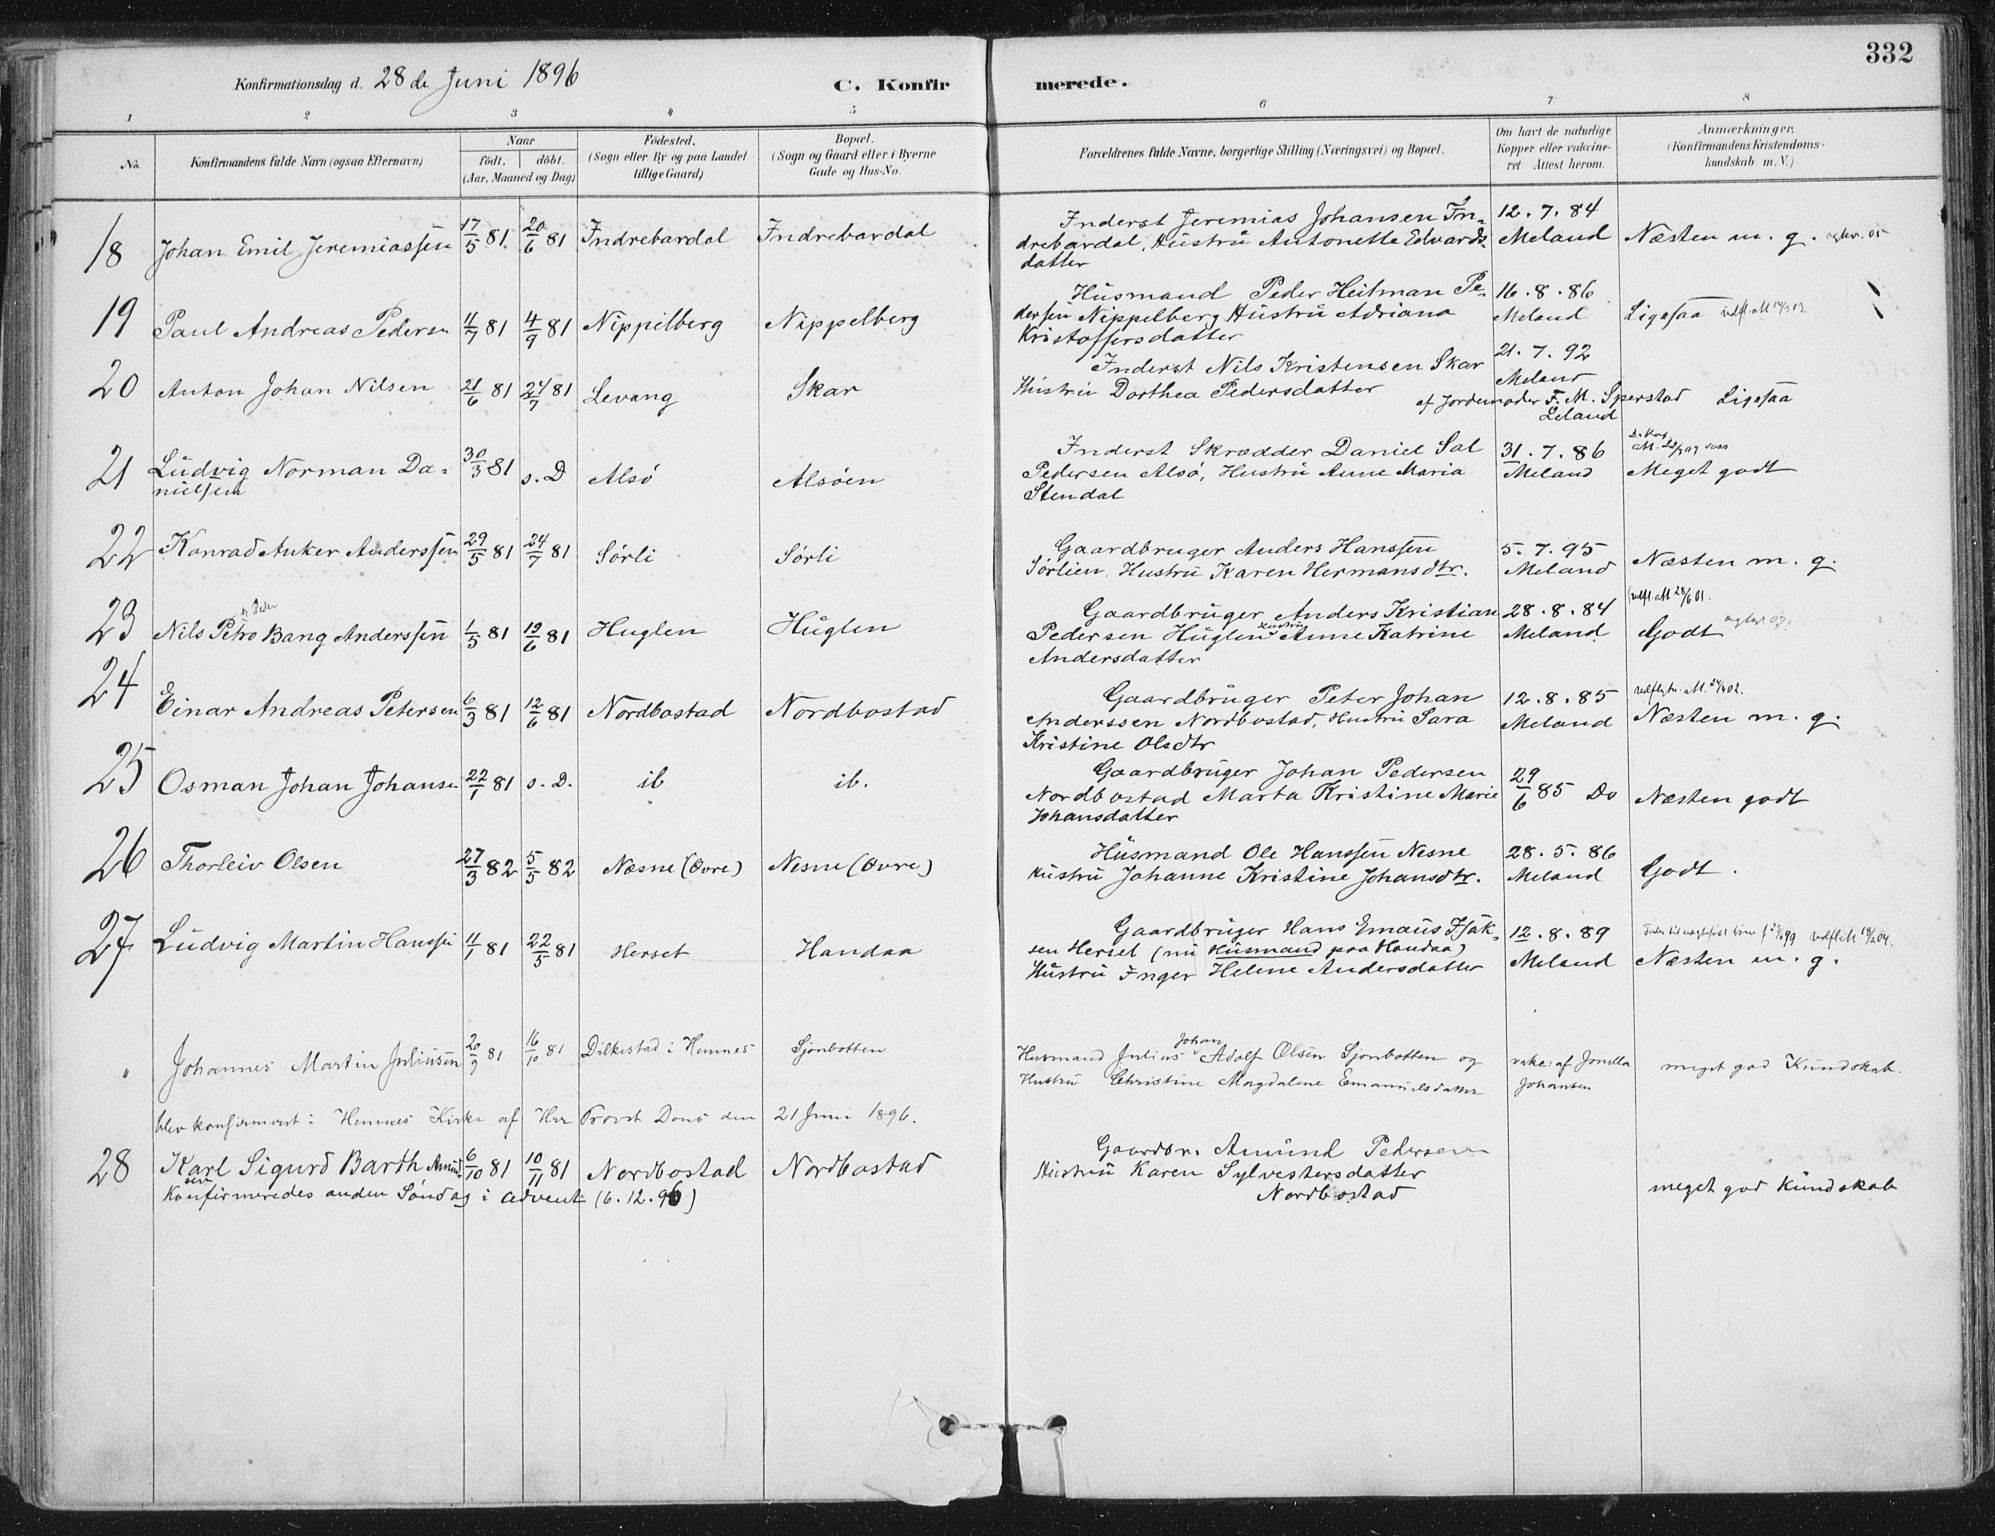 332
Konfirmationsdag d. 28de Juni 1896 C. Konfirmerede.
1 2 3 4 5 6 7 8
No. Konfirmandens fulde Navn (ogsaa Efternavn) Naar födt. döbt. (Aar, Maaned og Dag) Födested. (Sogn eller By og paa Landet tillige Gaard) Bopæl. (Sogn og Gaard eller i Byerne Gade og Hus-No. Forældrenes fulde Navne, borgerlige Stilling (Næringsvei) og Bopæl. Om havt de naturlige Kopper eller vakcineret. Attest herom. Anmærkninger. (Konfirmandens Kristendomskundskab m. V.)
18 Johan Emil Jeremiassen 17/5 81. 20/6 81 Indrebardal Indrebardal Inderst Jeremias Johansen In- 12.7.84
drebardal, Hustru Antonette Edvards- Meland Næsten m. g.
datter
19 Paul Andreas Pedersen 4/7 81 4/9 81 Nippilberg Nippelberg Husmand Peder Heitman Pe- 16.8.86
dersen Nippelberg Hustru Adriana Meland Ligesaa
Kristoffersdatter
20 Anton Johan Nilsen 21/6 81 24/7 81 Levang Skar Inderst Nils Kristensen Skar 21.7.92
Hustru Dorthea Pedersdatter Meland
af Jordemoder F. M. Sperstad Ligesaa
Leland
21 Ludvig Norman Da- 30/3 81 s. D Alsö Alsöen Inderst Skrædder Daniel Sal 31.7.86
nielsen Pedersen Alsö, Hustru Anne Maria Meland Meget godt
Stendal
22 Konrad Anker Anderssen 29/5 81 24/7 81 Sörli Sörli Gaardbruger Anders Hanssen 5.7.95
Sörlien. Hustru Karen Hermansdtr. Meland Næsten m. g.
23 Nils Petro Bang Anderssen 1/5 81 12/6 81 Huglen Huglen Gaardbruger Anders Kristian 28.8.84
Pedersen Huglen Hustru Anne Katrine Meland Godt
Andersdatter
24 Einar Andreas Petersen 6/3 81 12/6 81 Nordbostad Nordbostad Gaardbruger Peter Johan 12.8.85
Anderssen Nordbostad, Hustru Sara Meland Næsten m. g.
Kristine Olsdtr
25 Osman Johan Johansen 22/1 81 s. D. ib ib. Gaardbruger Johan Pedersen 29/6 85 Do
Nordbostad Marta Kristine Marie Næsten godt
Johansdatter
26 Thorleiv Olsen 27/3 82 5/5 82 Næsne (Övre) Nesne (Övre) Husmand Ole Hanssen Nesne 28.5.86
Hustru Johanne Kristine Johansdtr. Meland Godt.
27 Ludvig Martin Hanssen 4/1 81 22/5 81 Herset Handaa Gaardbruger Hans Emaus Isak- 12.8.89
sen Herset (nu Husmand paa Handaa) Meland Næsten m. g.
Hustru Inger Helene Andersdatter
" Johannes Martin Juliusen 20/9 81 16/10 81 Dilkestad i Hemnes Sjonbotten Husmand Julius Johan Adolf Olsen Sjonbotten og vakc: af Jonilla meget god Kundskab.
Hustru Christine Magdalene Emanuelsdatter Johansen
blev konfirmert i Hemnes Kirke af Hr Provst Dons den 21 Juni 1896.
28 Karl Sigurd Barth Amund- 6/10 81 10/11 81 Nordbostad Nordbostad Gaardbr. Amund Pedersen
sen Hustru Karen Sylvestersdatter
Konfirmeredes anden Söndag i advent (6.12.96) Nordbostad meget god kundskab